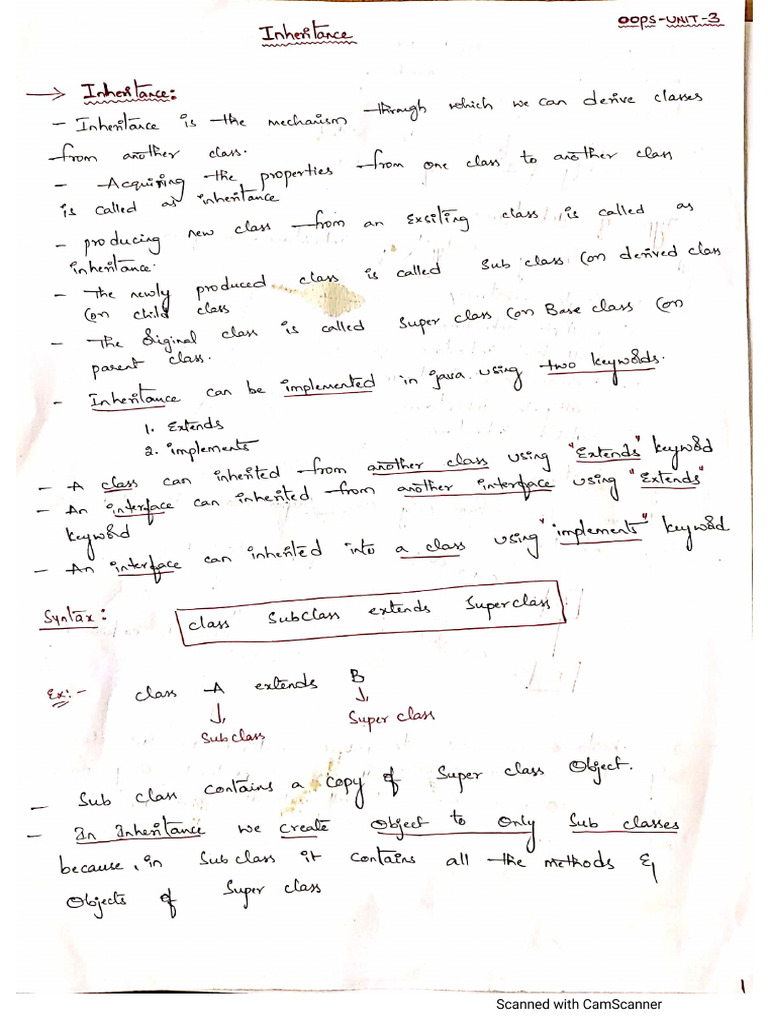 Inheritance
OOPS-UNIT-3
→ Inheritance:
- Inheritance is the mechanism through which we can derive classes
from another class.
- Acquiring the properties from one class to another class
is called as inheritance
- producing new class from an exciting class is called as
inheritance.
- The newly produced class is called sub class (or) derived class
(or) child class
- The original class is called Super class (or) Base class (or)
parent class.
- Inheritance can be implemented in java using two keywords.
1. Extends
2. implements
- A class can inherited from another class using "Extends" keyword
- An interface can inherited from another interface using "Extends"
keyword
- An interface can inherited into a class using "implements" keyword
Syntax: class SubClass extends Superclass
Ex:- class A extends B
↓ ↓
Subclass Super class
- Sub class contains a copy of Super class Object.
- In Inheritance we create object to only sub classes
because, in Sub class it contains all the methods &
Objects of Super class
1
Scanned with CamScanner